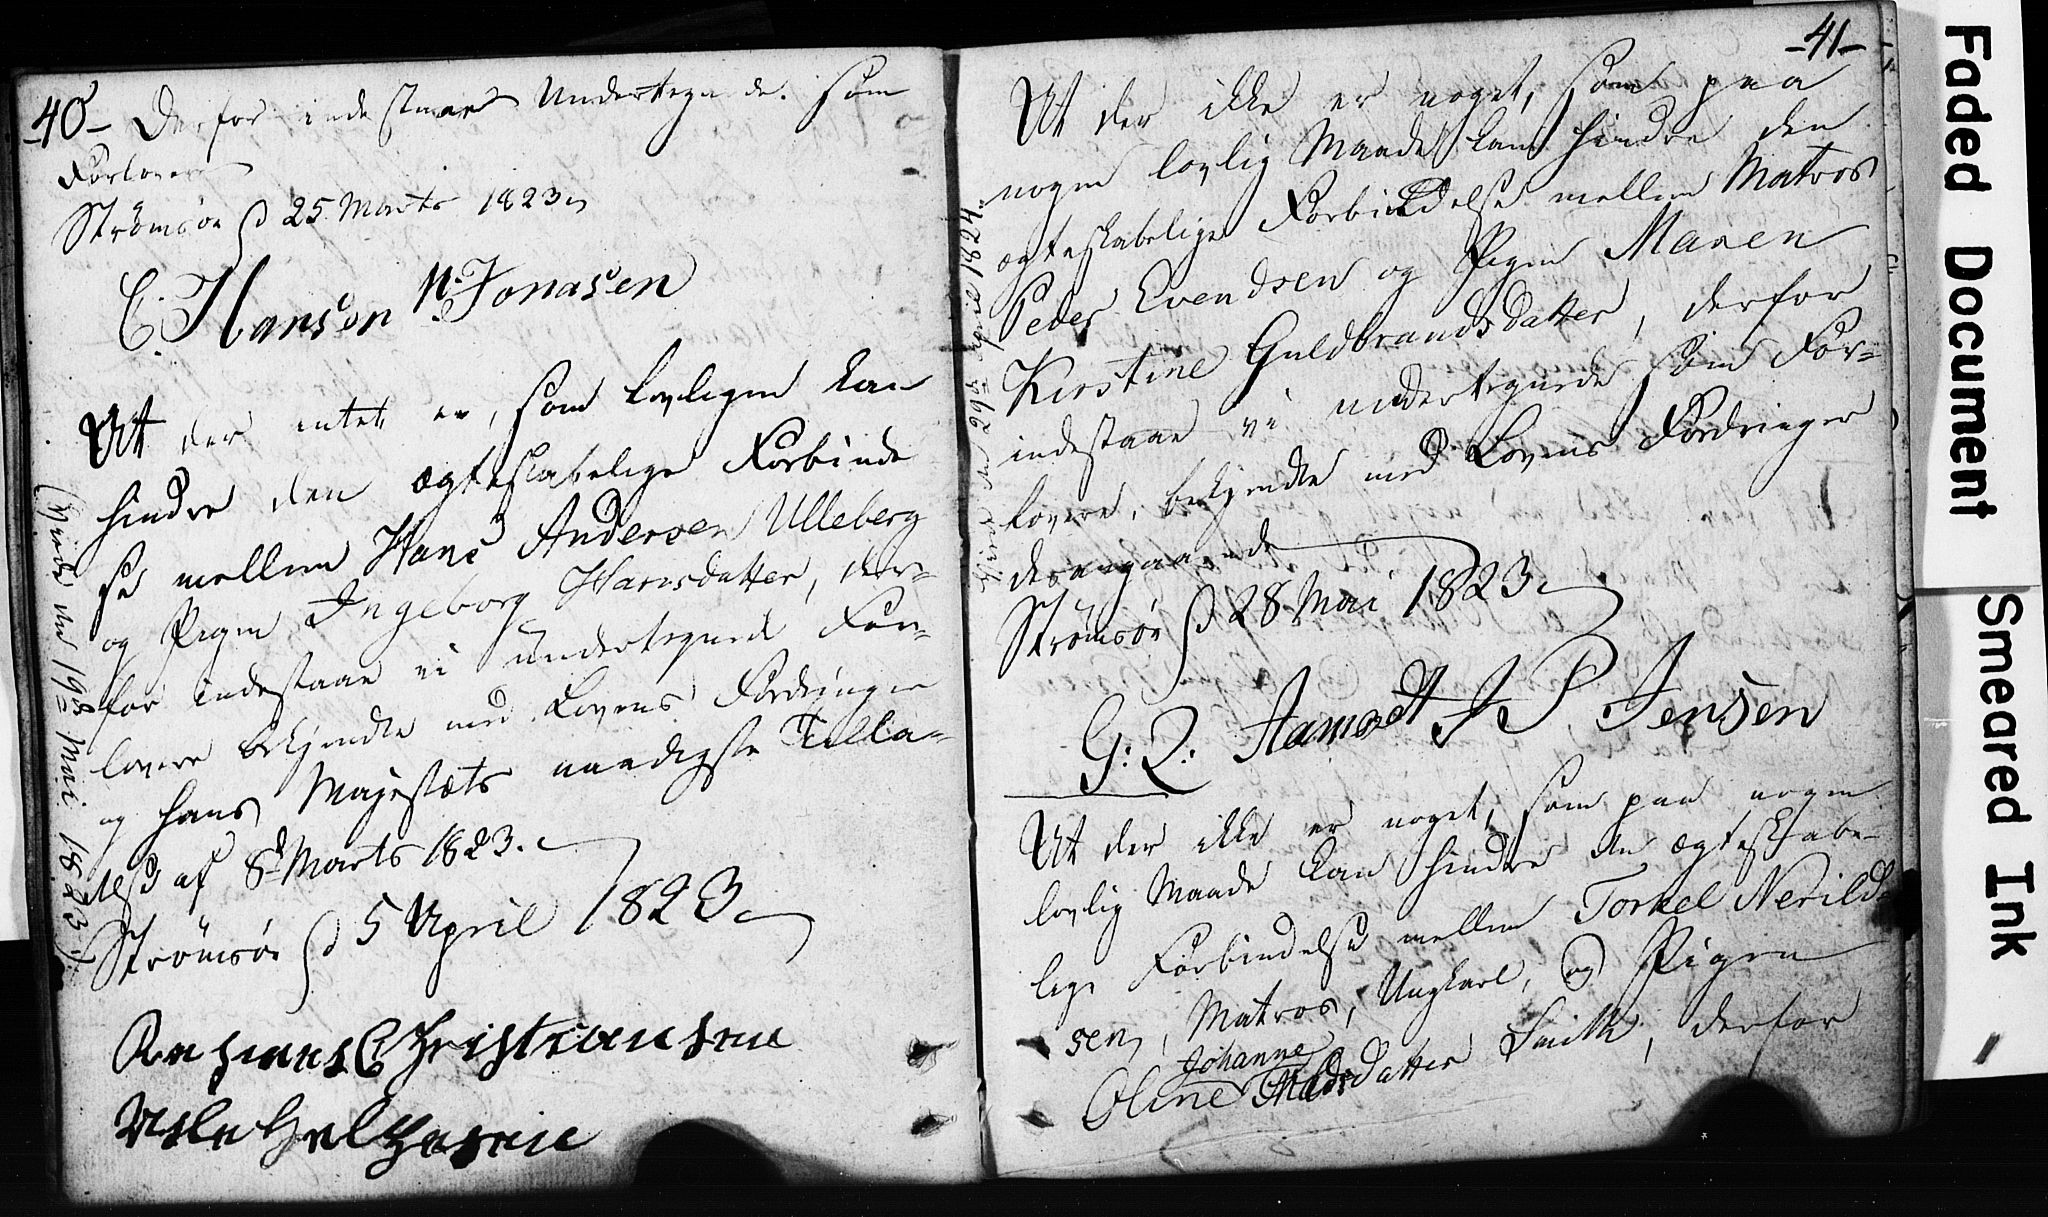 -40- Derfor indestaaer Undertegnede som
Forlovere
Strømsøe d 25 Marts 1823
C. Hansen N. Jonasen
At der intet er, som lovligen kan
hindre den ægteskabelige Forbindel
se mellem Hans Andersen Ulleberg
og Pigen Ingeborg Hansdatter, der=
for indestaae vi undertegnede For=
lovere bekjendte med Lovens Fordringer
og Hans Majestæts naadigste Tilla=
delse af 8d Marts 1823.
Strømsøe d 5 April 1823
Rasmus Christiansen
(Viede den 19de Mai 1823)
-41-
At der ikke er noget, som paa
nogen lovlig Maade kan hindre den
ægteskabelige Forbindelse mellem Matros
Peder Evendsen og Pigen Maren
Kirstine Guldbrandsdatter, derfor
indestaae vi undertegnede som For=
lovere, bekjendte med Lovens Fordringer
desangaaende
Strømsøe d 28 Mai 1823
G: Q: Aamodt J P Jensen
Viede den 29de April 1824.
At der ikke er noget, som paa nogen
lovlig Maade kan hindre den ægteskabe=
lige Forbindelse mellem Torkel Nerild=
sen, Matros, Ungkarl, og Pigen
Johanne
Oline Madsdatter Smith, derfor
Faded Document
Smeared Ink